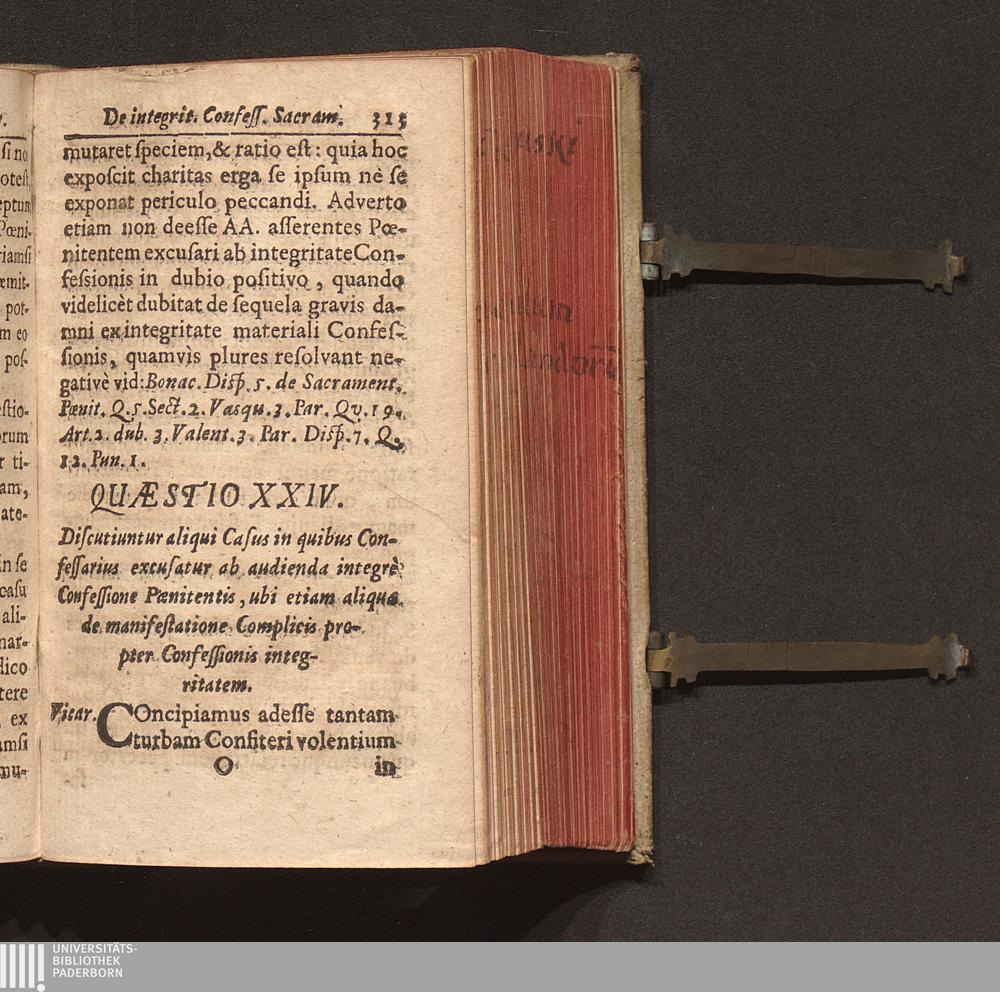 De integrit. Confeſſ. Sacram. 313
mutaret ſpeciem, & ratio eſt: quia hoc
expoſcit charitas erga ſe ipſum nè ſe
exponat periculo peccandi. Adverto
etiam non deeſſe AA. aſſerentes Pœ-
nitentem excuſari ab integritate Con-
feſsionis in dubio poſitivo, quando
videlicèt dubitat de ſequela gravis da-
mni ex integritate materiali Confeſ-
ſionis, quamvìs plures reſolvant ne-
gativè vid: Bonac. Diſp. 5. de Sacrament.
Pœnit. Q. 5. Sect. 2. Vasqu. 3. Par. Qv. 19.
Art. 2. dub. 3. Valent. 3. Par. Diſp. 7. Q.
12. Pun. 1.
QUÆSTIO XXIV.
Diſcutiuntur aliqui Caſus in quibus Con-
feſſarius excuſatur ab audienda integrè
Confeſſione Pœnitentis, ubi etiam aliqua
de manifeſtatione Complicis pro-
pter Confeſſionis integ-
ritatem.
Vicar. COncipiamus adeſſe tantam
turbam Confiteri volentium
O in
ſi no
oteſt
eptum
Pœni-
riamſi
œmit-
pot-
m eo
poſ-
eſtio-
orum
r ti-
am,
ate-
in ſe
caſu
ali-
nar-
dico
tere
ex
amſi
mu-
UNIVERSITÄTS-
BIBLIOTHEK
PADERBORN